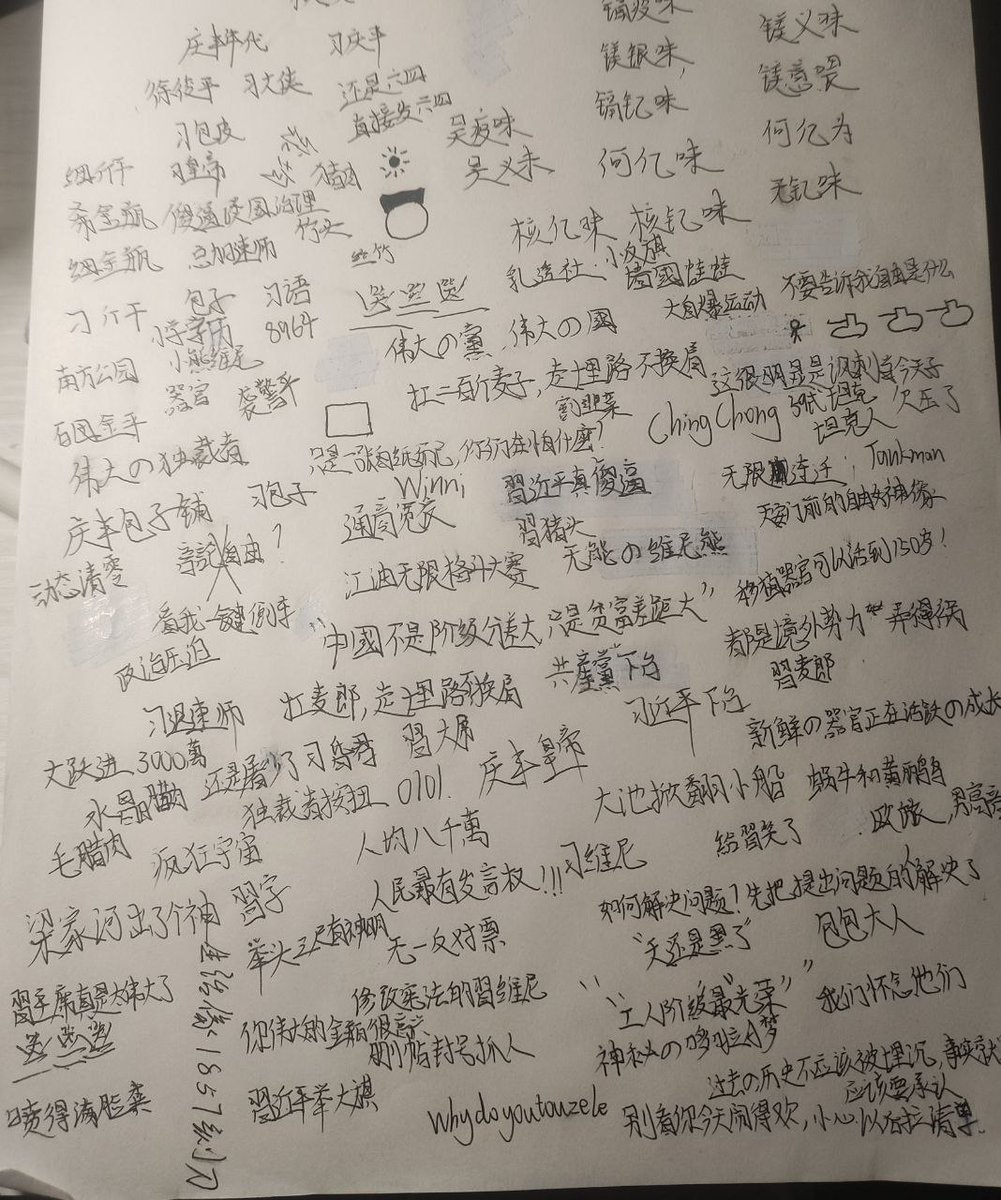 庆丰年代 习庆丰 镁银味 镁义味
徐俊平 习大侠 还是六四 镁意思
习包皮 直接发六四 吴疫味 镐钇味
细行干 习皇帝 猪肉 吴义未 何亿味 何亿为
希金瓶 傻逼治国治理 竹头 核亿味 核钇味 无钇味
细金瓶 总加速师 丝竹 乳透社 小反旗
习行干 包子 习语 选选选 墙國蛙蛙 不要告诉我自由是什么
小学学历 8964 大自爆运动
南方公园 小熊维尼 伟大の黨 伟大の國
百因金平 器官 袭警平 扛二百斤麦子,走十里路不换肩 这很明显是讽刺当今天子
割韭菜 Ching Chong 59式坦克 欠压了
伟大の独裁者 只是一张白纸而已,你们在怕什么? 坦克人
庆丰包子铺 习包子 Winni 習近平真傻逼 无限连迁 Tankman
通商宽衣 習猪头 天安门前的自由女神像
动态清零 言论自由? 江油无限格斗大赛 无能の维尼熊 移植器官可以活到150岁!
看我一键倒车 "中國不是阶级分差大,只是贫富差距大" 都是境外势力 弄得祸
政治压迫 共產黨下台 習麦郎
习退速师 扛麦郎,走十里路不换肩 习近平下台 新鲜の器官正在活跃の成长
大跃进3000萬 还是看 了 习昏君 習大帝
水晶腊肉 独裁者按扭 0101. 庆丰皇帝 大池掀翻小船 蜗牛和黄鹂鸟
毛腊肉 疯狂宇宙 人均八千萬 给習笑了
梁家河出了个神 習字 人民最有发言权!!! 习维尼 如何解决问题?先把提出问题的解决了
举头三尺有神明 无一反对票 "天还是黑了" 包包大人
習主席真是太伟大了 修改宪法的習维尼 "工人阶级最光荣" 我们怀念他们
选选选 你伟大的金 很高 删帖封号抓人 神秘の哆啦A梦
喷得满脸粪 習近平举大旗 whydoyoutouzele 过去の历史不应该被埋沉,事实就应该要承认
1857 别看你今天闹得欢,小心以后拉清单.